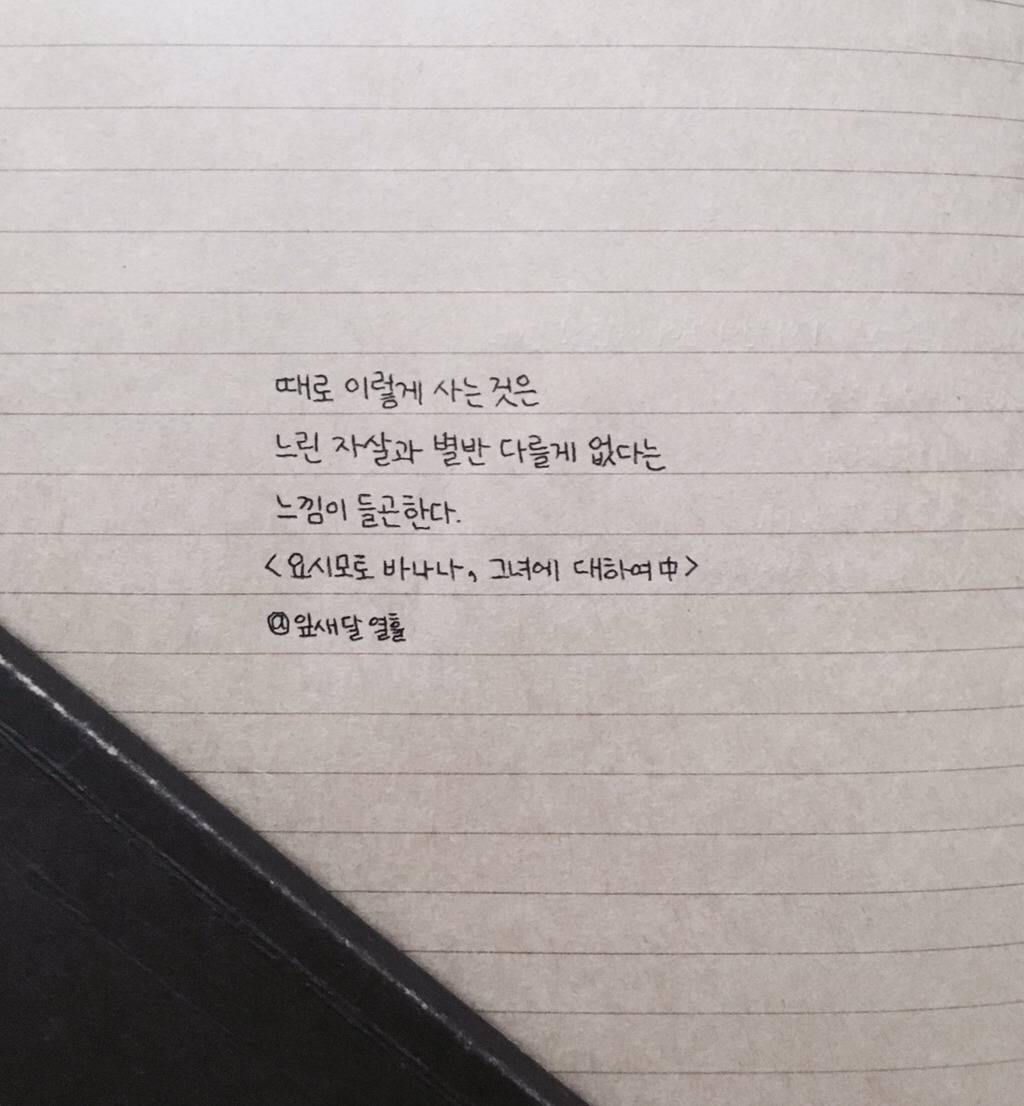 때로 이렇게 사는 것은
느린 자살과 별반 다를게 없다는
느낌이 들곤한다.
<요시모토 바나나, 그녀에 대하여 中>
@앞새달 열흘